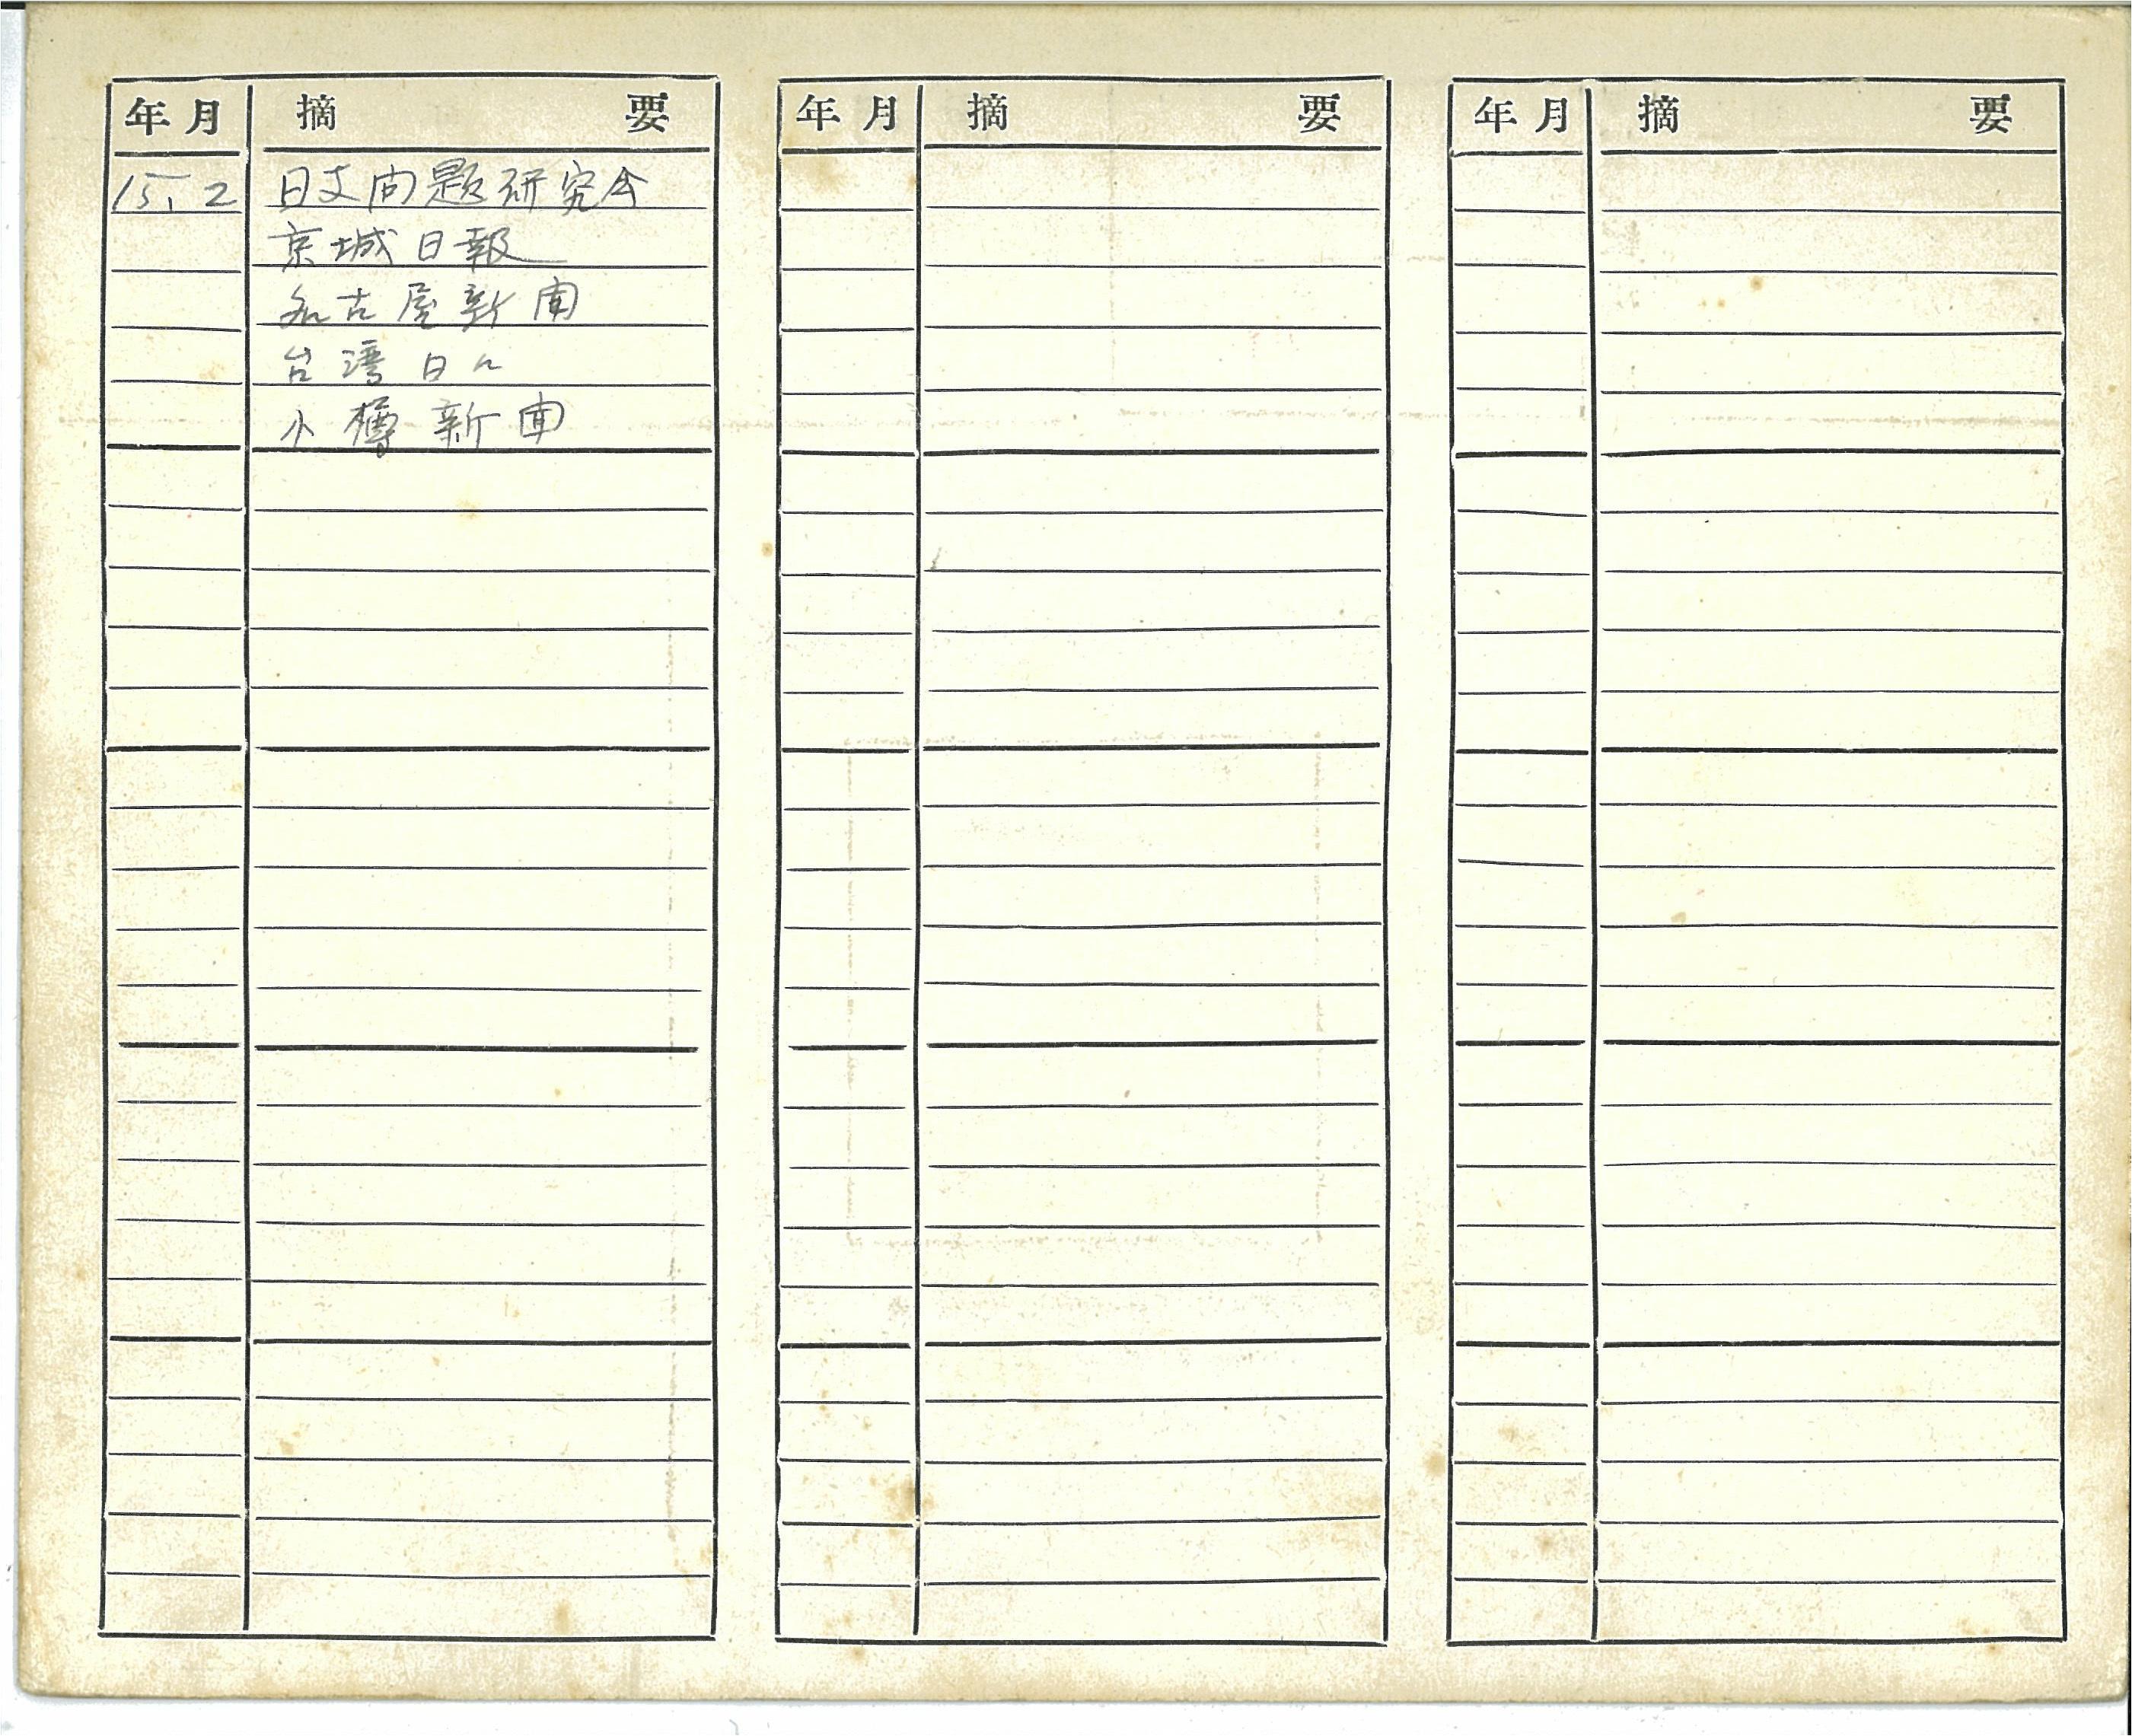 年月 摘要 年月 摘要 年月 摘要
15.2 日支向題研究会
京城日報
名古屋新聞
台湾日々
小樽新聞